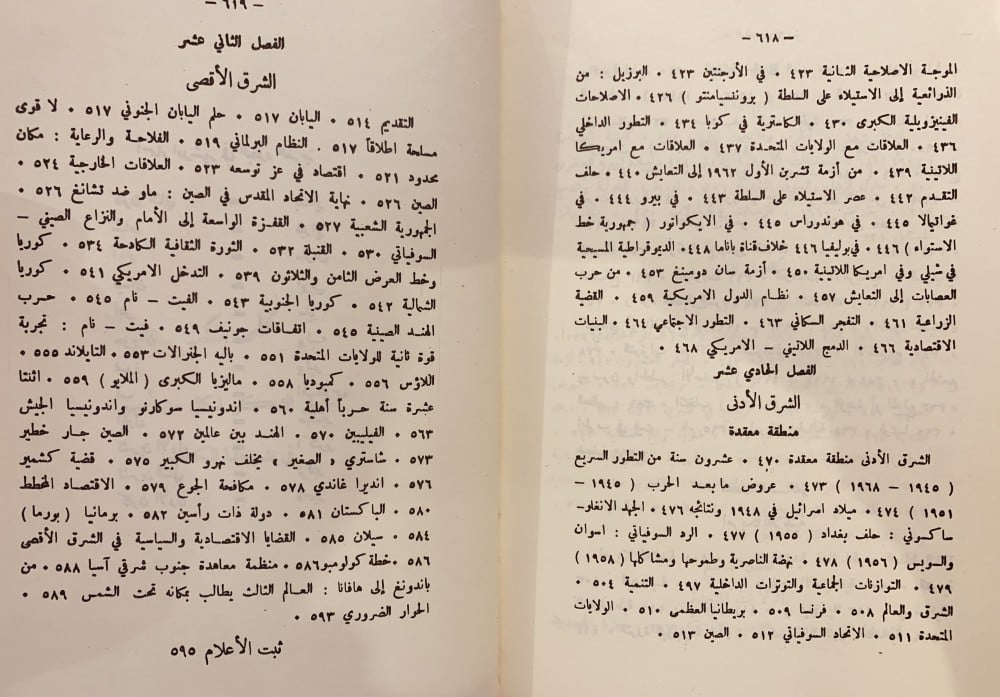 — ٦١٨ —
الموجة الاصلاحية الثانية ٤٢٣ . في الأرجنتين ٤٢٣ . البرزيل : من
الذرائعية إلى الاستيلاء على السلطة ( برونسيامنتو ) ٤٢٦ . الاصلاحات
الفينيزويلية الكبرى ٤٣٠ . الكاستروية في كوبا ٤٣٤ . التطور الداخلي
٤٣٦ . العلاقات مع الولايات المتحدة ٤٣٧ . العلاقات مع امريكا
اللاتينية ٤٣٩ . من أزمة تشرين الأول ١٩٦٢ إلى التعايش ٤٤٠ . حلف
التقدم ٤٤٢ . عصر الاستيلاء على السلطة ٤٤٣ . في بيرو ٤٤٤ . في
غواتيمالا ٤٤٥ . في هوندوراس ٤٤٥ . في الايكواتور ( جمهورية خط
الاستواء ) ٤٤٦ . في بوليفيا ٤٤٦ خلاف قناة باناما ٤٤٨ . الديموقراطية المسيحية
في شيلي وفي امريكا اللاتينية ٤٥٠ . أزمة سان دومينغ ٤٥٣ . من حرب
العصابات إلى التعايش ٤٥٧ . نظام الدول الامريكية ٤٥٩ . القضية
الزراعية ٤٦١ . التفجر السكاني ٤٦٣ . التطور الاجتماعي ٤٦٤ . البنيات
الاقتصادية ٤٦٦ . الدمج اللاتيني – الامريكي ٤٦٨ .
الفصل الحادي عشر
الشرق الأدنى
منطقة معقدة
الشرق الأدنى منطقة معقدة ٤٧٠ . عشرون سنة من التطور السريع
( ١٩٤٥ – ١٩٦٨ ) ٤٧٣ . عروض ما بعد الحرب ( ١٩٤٥ –
١٩٥١ ) ٤٧٤ . ميلاد اسرائيل في ١٩٤٨ ونتائجه ٤٧٦ . الجهد الانغلو–
ساكسوني : حلف بغداد ( ١٩٥٥ ) ٤٧٧ . الرد السوفياتي : اسوان
والسويس ( ١٩٥٦ ) ٤٧٨ . نهضة الناصرية وطموحها ومشاكلها ( ١٩٥٨ )
٤٧٩ . التوازنات الجماعية والتوترات الداخلية ٤٩٧ . التنمية ٥٠٤ .
الشرق والعالم ٥٠٨ . فرنسا ٥٠٩ . بريطانيا العظمى ٥١٠ . الولايات
المتحدة ٥١١ . الاتحاد السوفياتي ٥١٢ . الصين ٥١٣ .
— ٦١٩ —
الفصل الثاني عشر
الشرق الأقصى
التقديم ٥١٤ . اليابان ٥١٧ . حلم اليابان الجنوني ٥١٧ . لا قوى
مسلحة اطلاقاً ٥١٧ . النظام البرلماني ٥١٩ . الفلاحة والرعاية : مكان
محدود ٥٢١ . اقتصاد في عز توسعه ٥٢٣ . العلاقات الخارجية ٥٢٤ .
الصين ٥٢٦ . نهاية الاتحاد المقدس في الصين : ماو ضد تشانغ ٥٢٦ .
الجمهورية الشعبية ٥٢٧ . القفزة الواسعة إلى الأمام والنزاع الصيني –
السوفياتي ٥٣٠ . القنبلة ٥٣٢ . الثورة الثقافية الكادحة ٥٣٤ . كوريا
وخط العرض الثامن والثلاثون ٥٣٩ . التدخل الامريكي ٥٤١ . كوريا
الشمالية ٥٤٢ . كوريا الجنوبية ٥٤٣ . الفيت – نام ٥٤٥ . حرب
الهند الصينية ٥٤٥ . اتفاقات جونيف ٥٤٩ . فيت – نام : تجربة
قوة ثانية للولايات المتحدة ٥٥١ . باليه الجنرالات ٥٥٣ . التايلاند ٥٥٥ .
اللاؤس ٥٥٦ . كمبوديا ٥٥٨ . ماليزيا الكبرى ( الملايو ) ٥٥٩ . اثنتا
عشرة سنة حرباً أهلية ٥٦٠ . اندونيسيا سوكارنو واندونيسيا الجيش
٥٦٣ . الفيليبين ٥٧٠ . الهند بين عالمين ٥٧٢ . الصين جار خطير
٥٧٣ . شاستري « الصغير » يخلف نهرو الكبير ٥٧٥ . قضية كشمير
٥٧٦ . انديرا غاندي ٥٧٨ . مكافحة الجوع ٥٧٩ . الاقتصاد المخطط
٥٨٠ . الباكستان ٥٨١ . دولة ذات رأسين ٥٨٢ . برمانيا ( بورما )
٥٨٤ . سيلان ٥٨٥ . القضايا الاقتصادية والسياسية في الشرق الأقصى
٥٨٦ . خطة كولومبو ٥٨٦ . منظمة معاهدة جنوب شرقي آسيا ٥٨٨ . من
باندونغ إلى هافانا : العالم الثالث يطالب بمكانه تحت الشمس ٥٨٩ .
الحوار الضروري ٥٩٣ .
ثبت الأعلام ٥٩٥